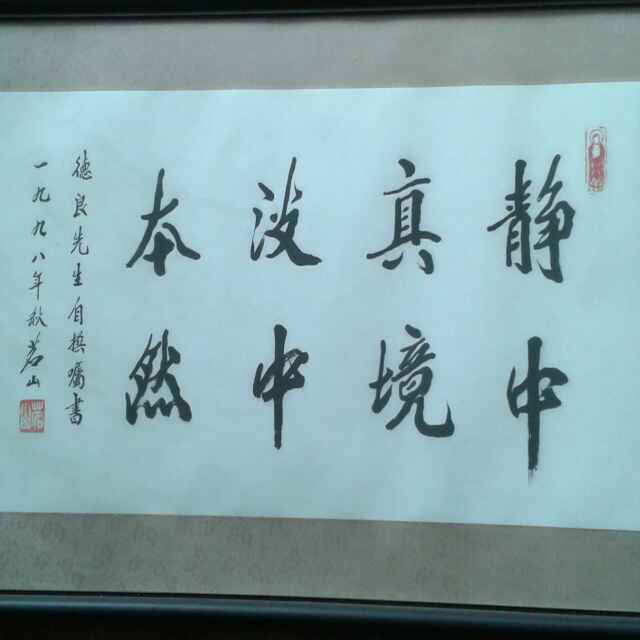 静中
真境
淡中
本然
德良先生自撰嘱书
一九九八年秋茗山